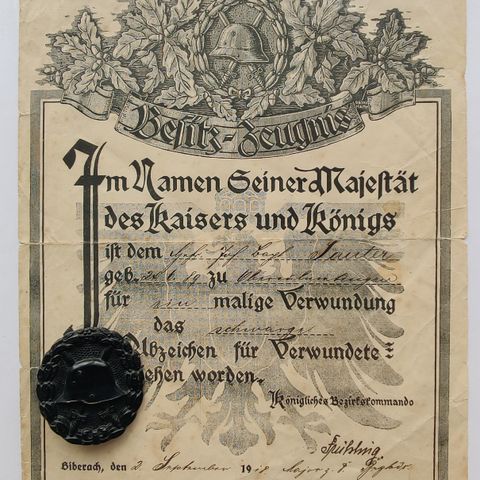 Besitz-Zeugnis
Im Namen Seiner Majestät
des Kaisers und Königs
ist dem Sauter
geb. zu
für ein malige Verwundung
das schwarze
Abzeichen für Verwundete
ehen worden.
Königliches Bezirkskommando
Biberach, den 2 September 1918 Major z. D.